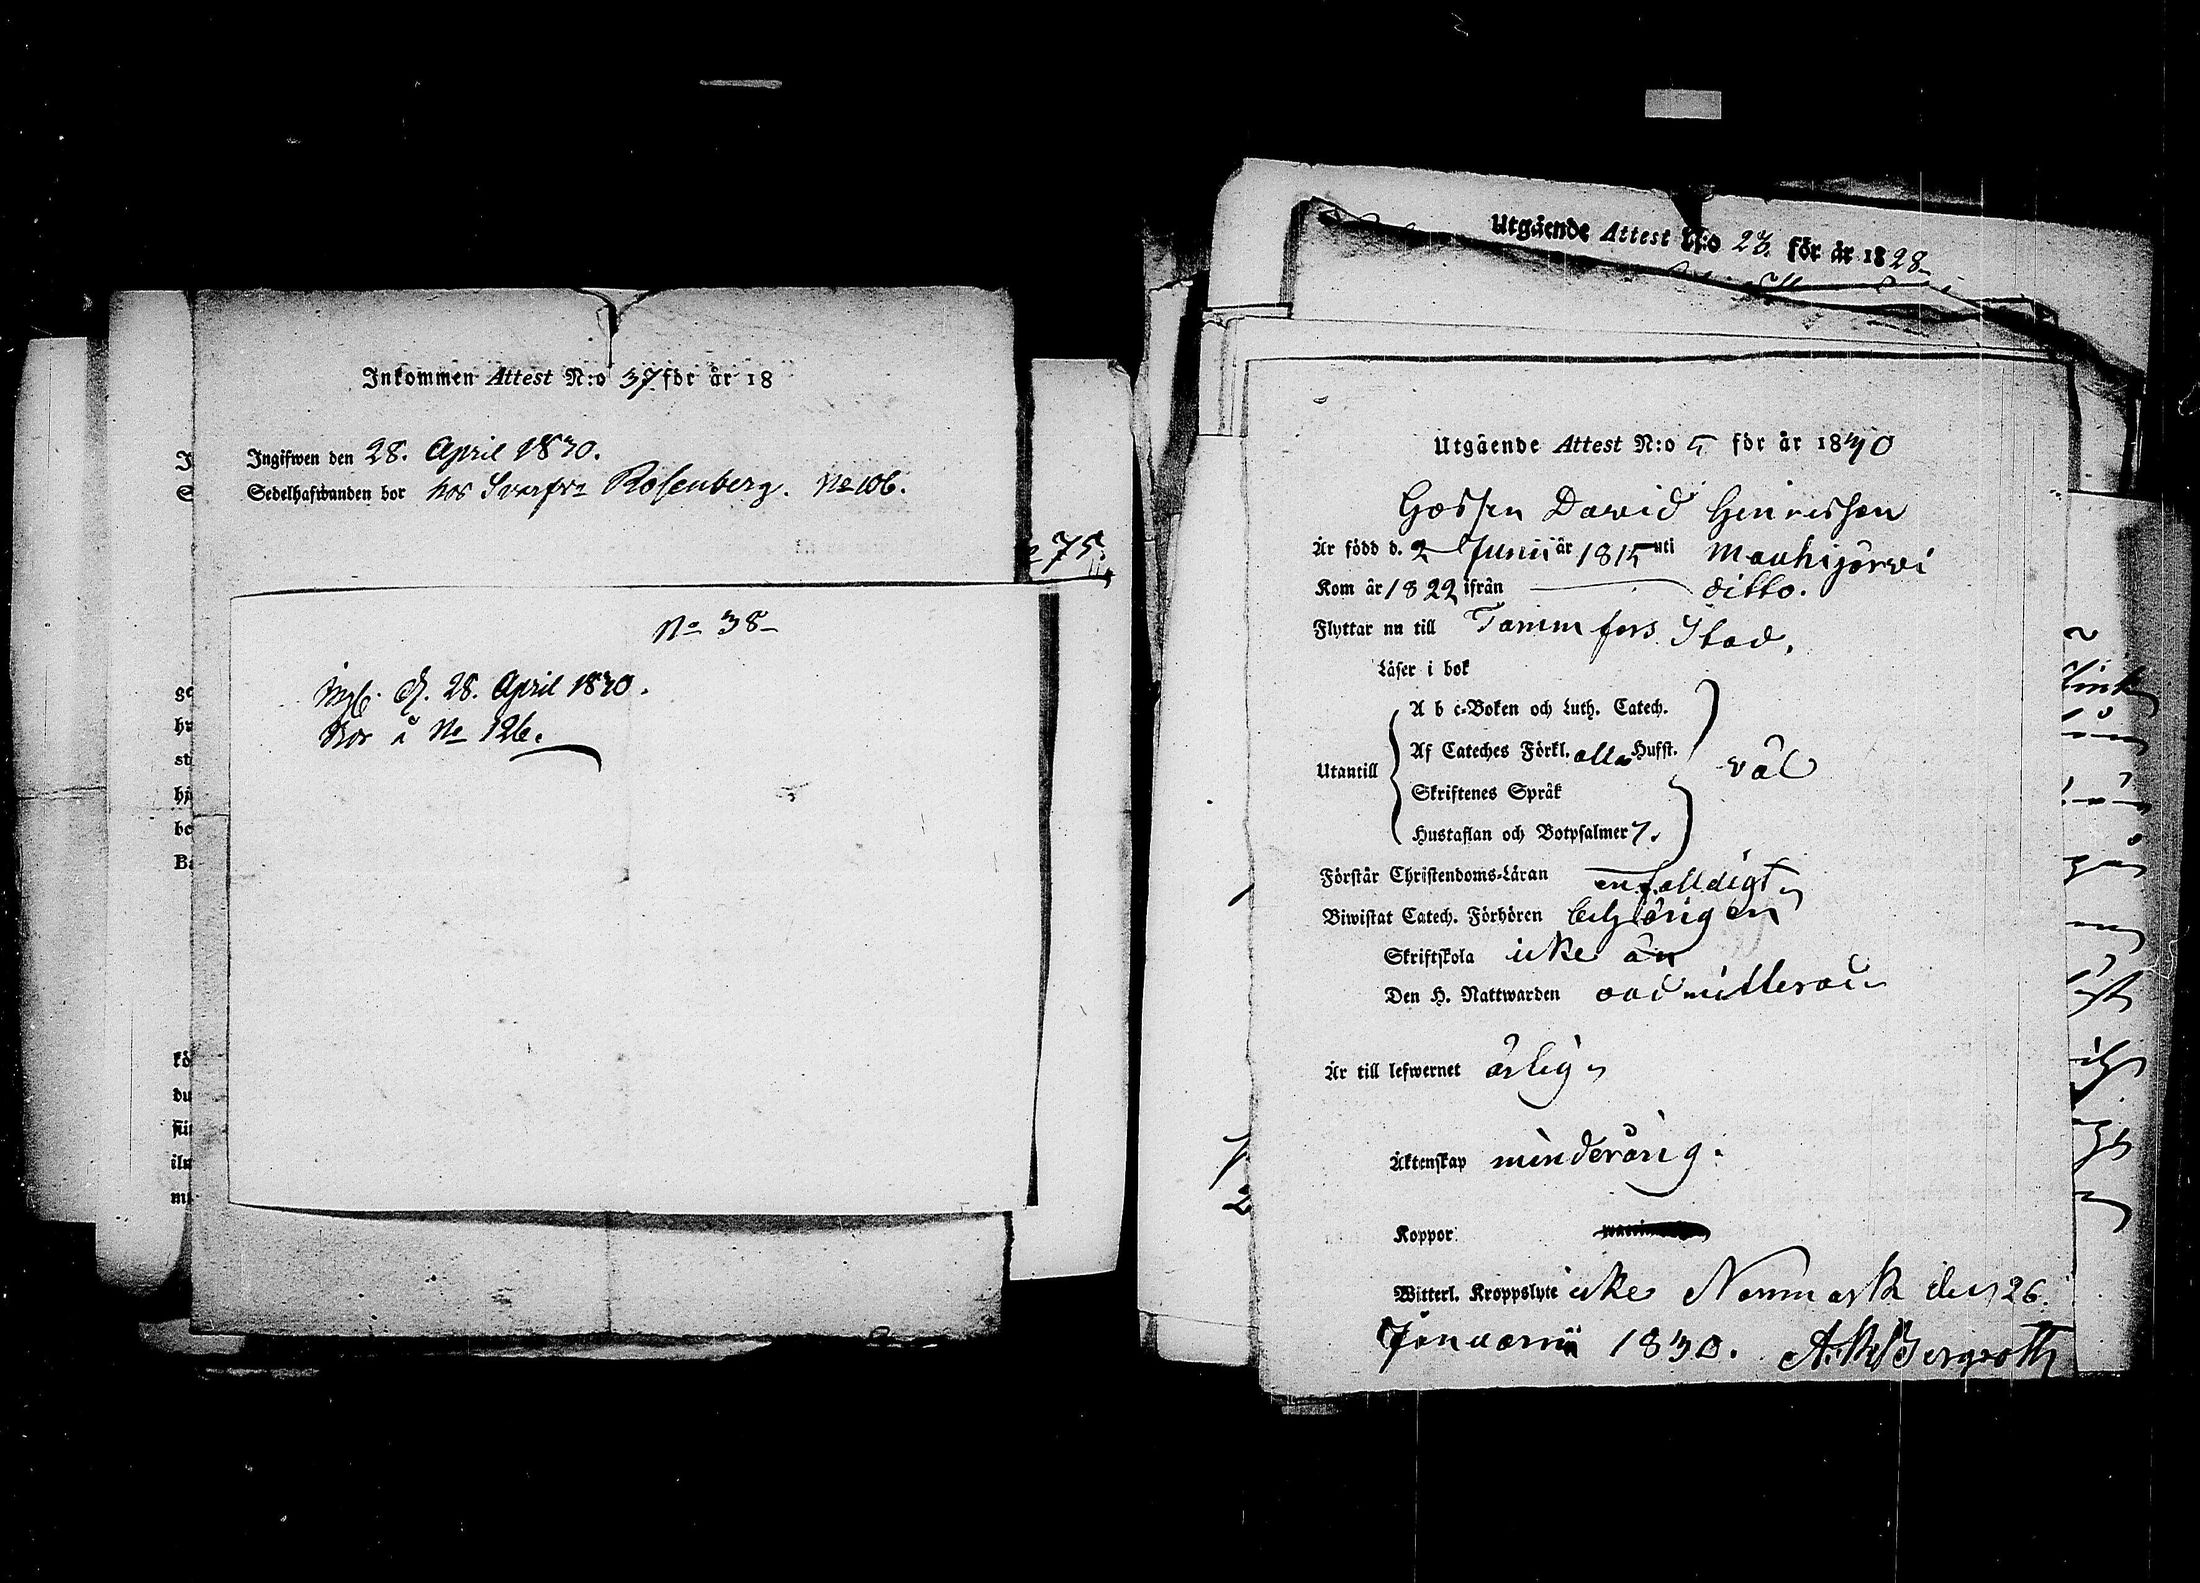 Inkommen Attest N:o 37 för år 18
Ingifwen den 28. April 1830.
Sedelhafwanden bor hos Svarfv: Rosenberg. No 106.
75.
No 38
Ingf. d. 28. April 1830.
Bor å No 126.
Utgående Attest N:o 23. för år 1828
Utgående Attest N:o 5 för år 1830
Gossen David Henricsson
Är född d. 2 Junii år 1815 uti Mouhijärvi
Kom år 1822 ifrån ditto.
Flyttar nu till Tammfors Stad,
Läser i bok
A b c-Boken och Luth. Catech.
Af Cateches Förkl. alla Hufst.
Utantill väl
Skriftenes Språk
Hustaflan och Botpsalmer 7.
Förstår Christendoms-Läran enfalldigt
Biwistat Catech. Förhören behörigen
Skriftskola icke än
Den H. Nattwarden admitterad
Är till lefwernet ärlig
Äktenskap minderårig.
Koppor
Witterl. Kroppslyte icke Nommark den 26.
Januarii 1830. Bergroth